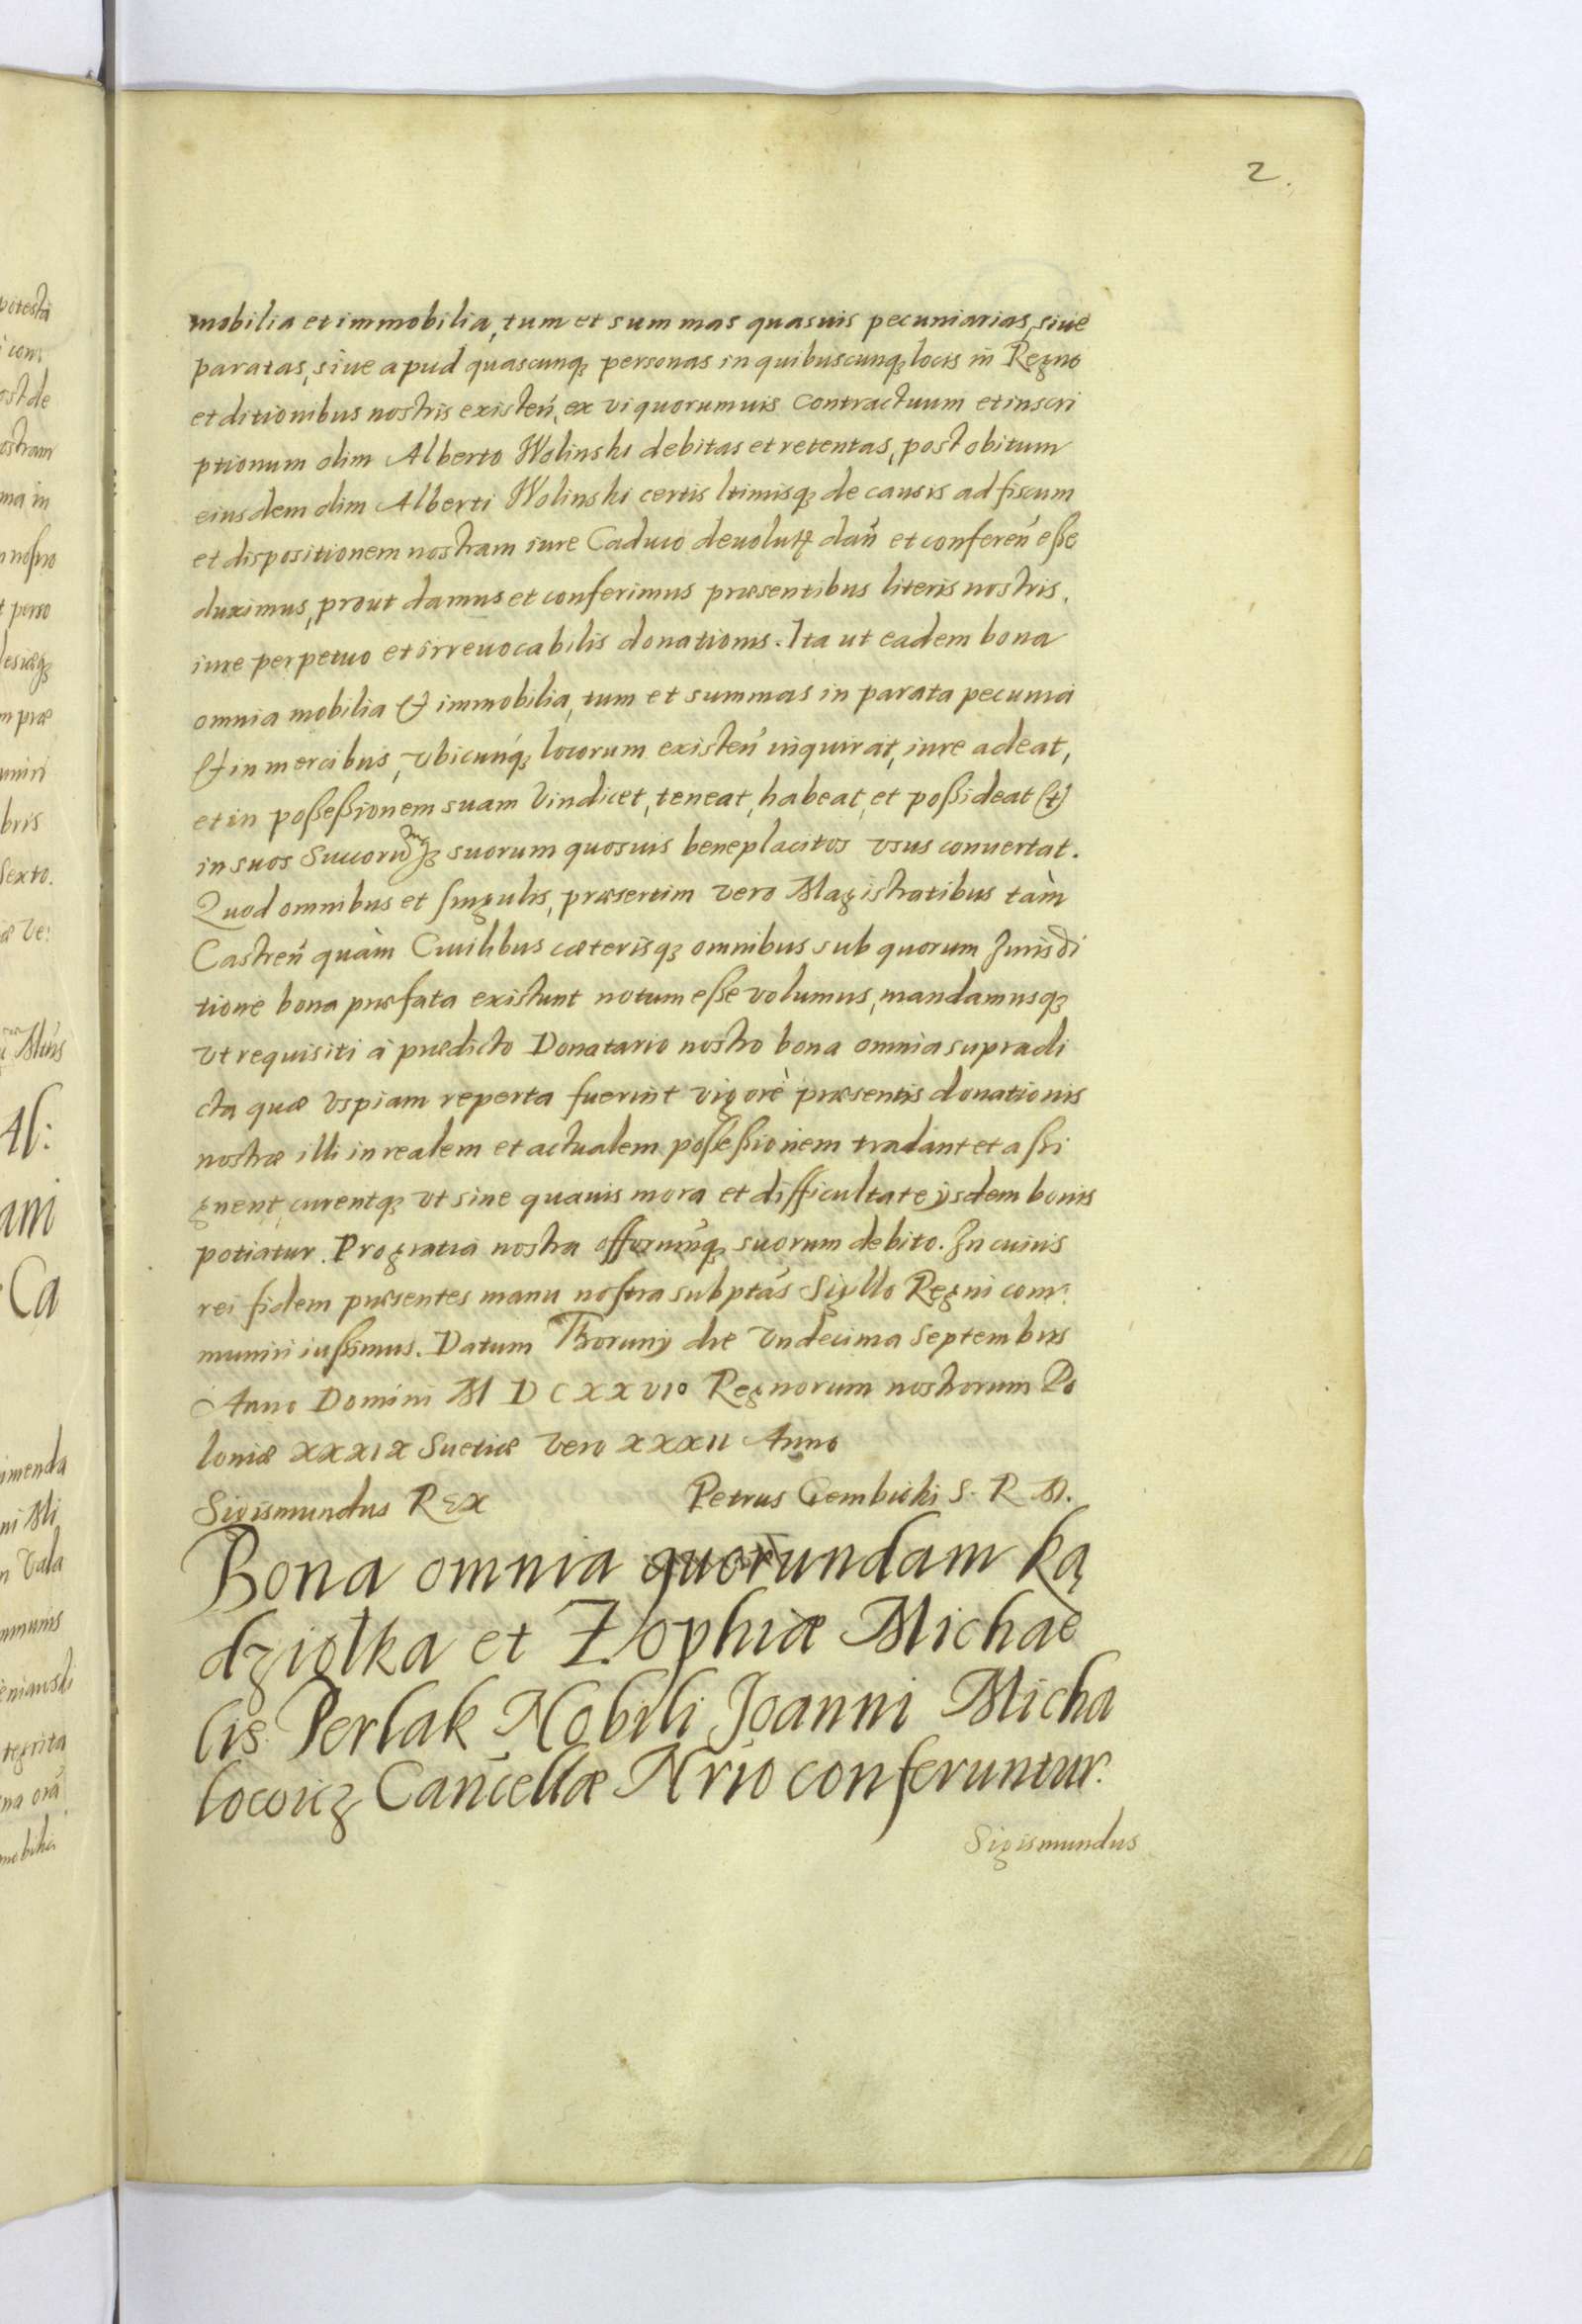 2.
mobilia et immobilia, tum et summas quasuis pecuniarias, siue
paratas, siue apud quascunq₃ personas in quibuscunq₃ locis in Regno
et ditionibus nostris existeń, ex vi quorumuis Contractuum et inscri
ptionum olim Alberto Wolinski debitas et retentas, post obitum
eiusdem olim Alberti Wolinski certis ltimisq₃ de causis ad fiscum
et dispositionem nostram iure Caduco deuolut dań et confereń eße
duximus, prout damus et conferimus præsentibus literis nostris.
iure perpetuo et irreuocabilis donationis. Ita ut eadem bona
omnia mobilia et immobilia, tum et summas in parata pecunia
et in mercibus, vbicunq₃ locorum existeń inquirat, iure adeat,
et in poßeßionem suam vindicet, teneat, habeat, et poßideat et
in suos Succorumq₃ suorum quosuis beneplacitos vsus conuertat.
Quod omnibus et singulis, præsertim vero Magistratibus tàm
Castreń quàm Ciuilibus cæterisq₃ omnibus sub quorum Jurisdi
tione bona præfata existunt notum eße volumus, mandamusq₃
vt requisiti à prædicto Donatario nostro bona omnia supradi
cta quæ vspiam reperta fuerint vigorè præsentis donationis
nostræ illi in realem et actualem poßeßionem tradant et aßi
gnent, curentq₃ vt sine quauis mora et difficultate ijsdem bonis
potiatur. Pro gratia nostra offorumq₃ suorum debito. In cuius
rei fidem præsentes manu nostra subptas Sigillo Regni com:
muniri iußimus. Datum Thorunij die vndecima Septembris
Anno Domini M D C XX VIo Regnorum nostrorum Po
loniæ XXXIX Suetiæ vero XXXII Anno
Sigismundus REX Petrus Gembicki S. R. M.
Bona omnia quorundam Ką
dziołka et Zophiæ Michae
lis Perlak Nobili Joanni Micha
lowicz Cancellæ Nrio conferuntur.
Sigismundus